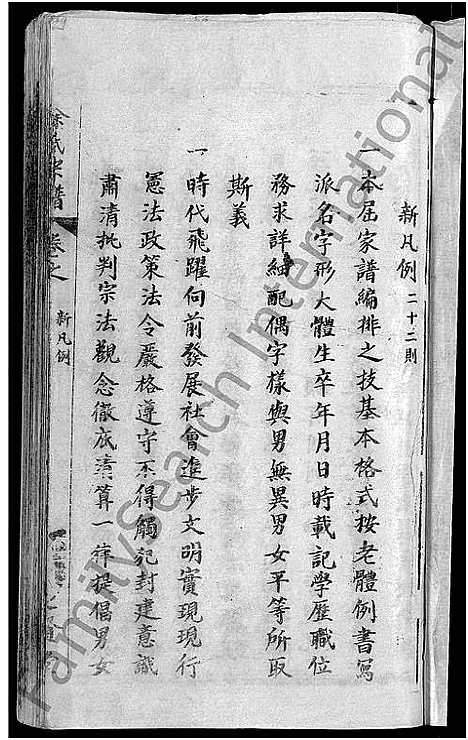 新凡例 二十二則
一本屆家譜編排之技基本格式按老體例書寫
派名字形大體生卒年月日時載記學歷職位
務求詳細配偶字樣與男無異男女平等所取
斯義
一時代飛躍向前發展社會進步文明實現現行
憲法政策法令嚴格遵守不得觸犯封建意識
肅清批判宗法觀念徹底清算一律提倡男女
余氏宗譜 卷之 新凡例
FamilySearch International